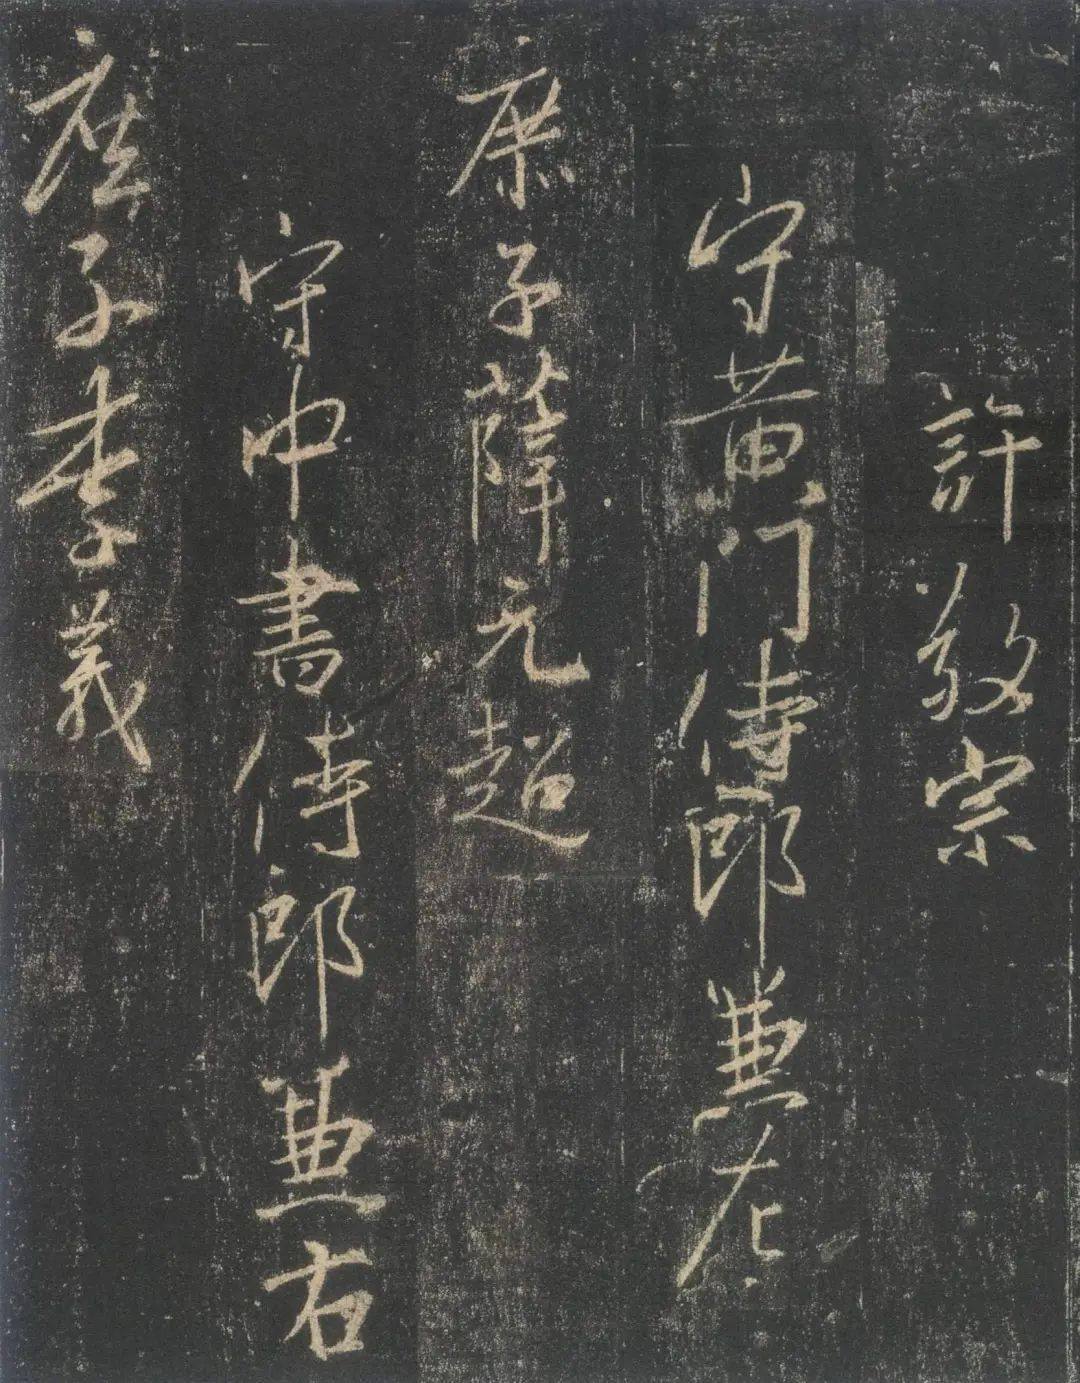 許敬宗
守黄門侍郎兼左
庶子薛元超
守中書侍郎兼右
庶子李義